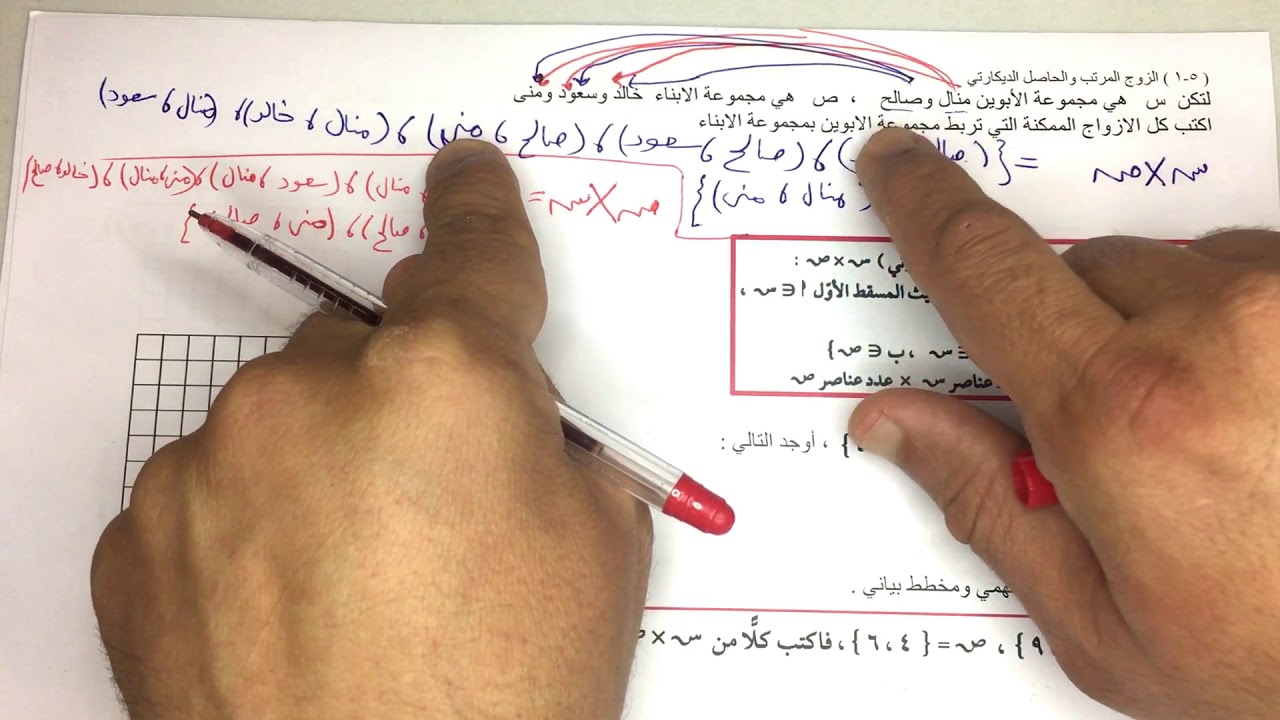 ( ٥-١ ) الزوج المرتب والحاصل الديكارتي
لتكن س هي مجموعة الأبوين منال وصالح ، ص هي مجموعة الابناء خالد وسعود ومنى
اكتب كل الازواج الممكنة التي تربط مجموعة الابوين بمجموعة الابناء
س × ص = { ( ) ، (صالح ، سعود) ، (صالح ، منى) ، (منال ، خالد) ، (منال ، سعود)
(منال ، منى) }
ص × س = منال) ، (سعود ، منال) ، (منى ، منال) ، (خالد ، صالح)
، صالح) ، (منى ، صالح) }
) س × ص :
المسقط الأوّل أ ∈ س ،
∈ س ، ب ∈ ص }
عناصر س × عدد عناصر ص
} ، أوجد التالي :
ومخطط بياني .
٩ } ، ص = { ٤ ، ٦ } ، فاكتب كلًّا من س ×